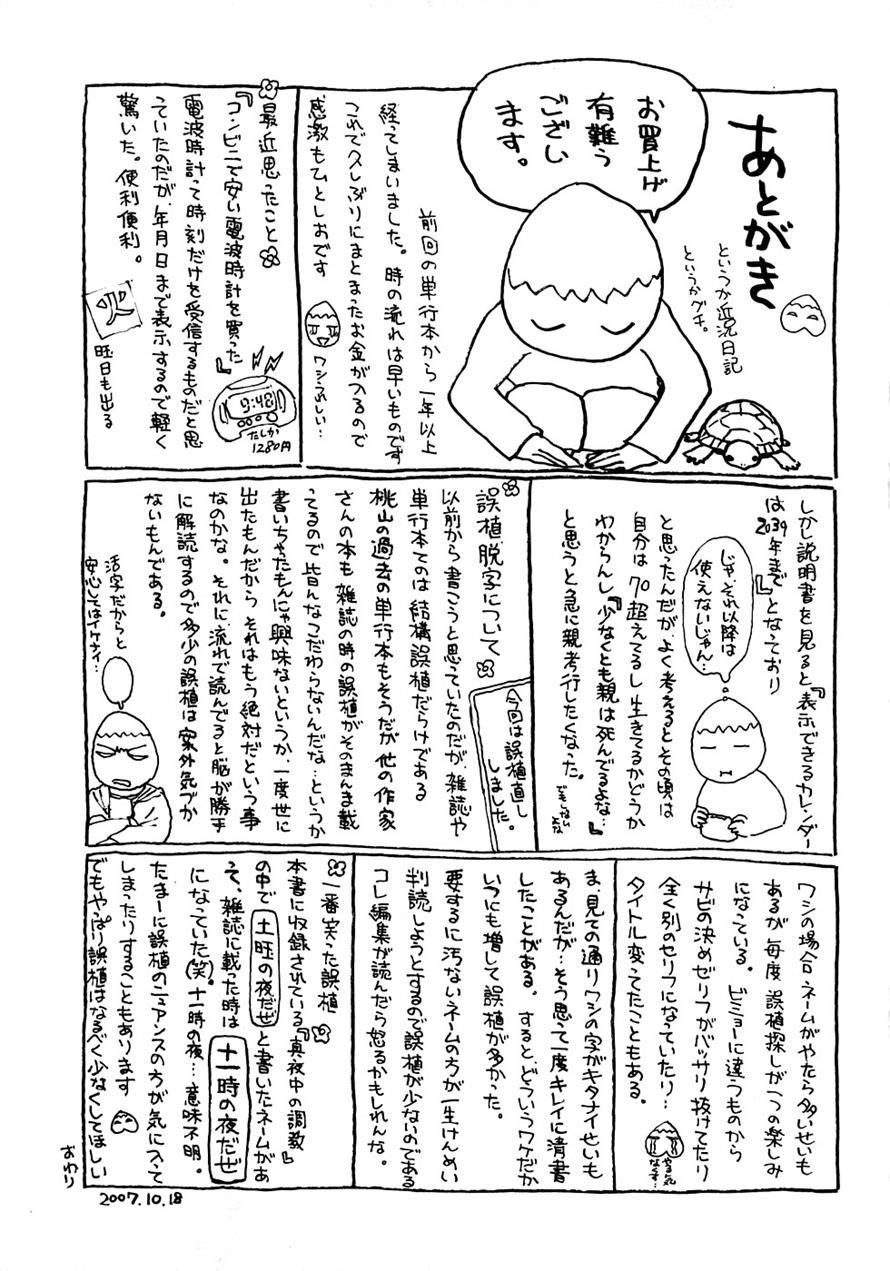 あとがき
というか近況日記
というかグチ。
お買上げ
有難う
ござい
ます。
前回の単行本から一年以上
経ってしまいました。時の流れは早いものです
これで久しぶりにまとまったお金が入るので
感激もひとしおです
ワシ、うれしい…
最近思ったこと
『コンビニで安い電波時計を買った』
9:48
たしか
1280円
電波時計って時刻だけを受信するものだと思
っていたのだが、年月日まで表示するので軽く
驚いた。便利便利。
火
曜日も出る
しかし説明書を見ると『表示できるカレンダー
は2039年まで』となっており
じゃ、それ以降は
使えないじゃん…
と思ったんだが、よく考えるとその頃は
自分は70超えてるし生きてるかどうか
わからんし『少なくとも親は死んでるよな…』
と思うと急に親孝行したくなった。
誤植脱字について
今回は誤植直し
しました。
以前から書こうと思っていたのだが、雑誌や
単行本てのは結構誤植だらけである
桃山の過去の単行本もそうだが他の作家
さんの本も雑誌の時の誤植がそのまんま載
ってるので皆んなこだわらないんだな…というか
書いちゃたもんにゃ興味ないというか、一度世に
出たもんだからそれはもう絶対だという事
なのかな。それに流れで読んでると脳が勝手
に解読するので多少の誤植は案外気づか
ないもんである。
活字だからと
安心してはイケナイ…
ワシの場合、ネームがやたら多いせいも
あるが毎度誤植探しが一つの楽しみ
になっている。ビミョーに違うものから
サビの決めゼリフがバッサリ抜けてたり
全く別のセリフになっていたり…
やる気
なくす…
タイトル変ってたこともある。
ま、見ての通りワシの字がキタナイせいも
あるんだが…そう思って一度キレイに清書
したことがある。すると、どういうワケだか
いつにも増して誤植が多かった。
要するに汚ないネームの方が一生けんめい
判読しようとするので誤植が少ないのである
コレ編集が読んだら怒るかもしれんな。
一番笑った誤植
本書に収録されている『真夜中の調教』
の中で土曜の夜だぜと書いたネームがあ
って、雑誌に載った時は十一時の夜だぜ
になっていた(笑)。十一時の夜…意味不明。
たまーに誤植のニュアンスの方が気に入って
しまったりすることもあります
でもやっぱり誤植はなるべく少なくしてほしい
おわり
2007.10.18